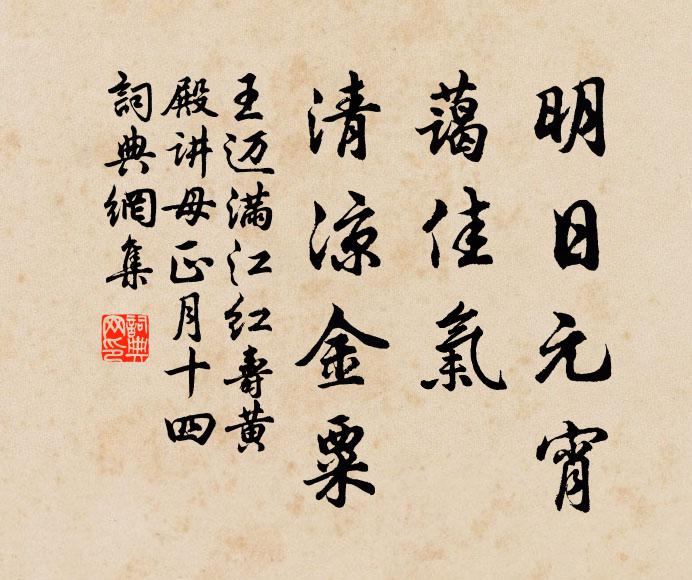 明日元宵
藹佳氣
清凉金粟
王迈滿江红壽黄
殿讲母正月十四
詞典網集
詞典网印